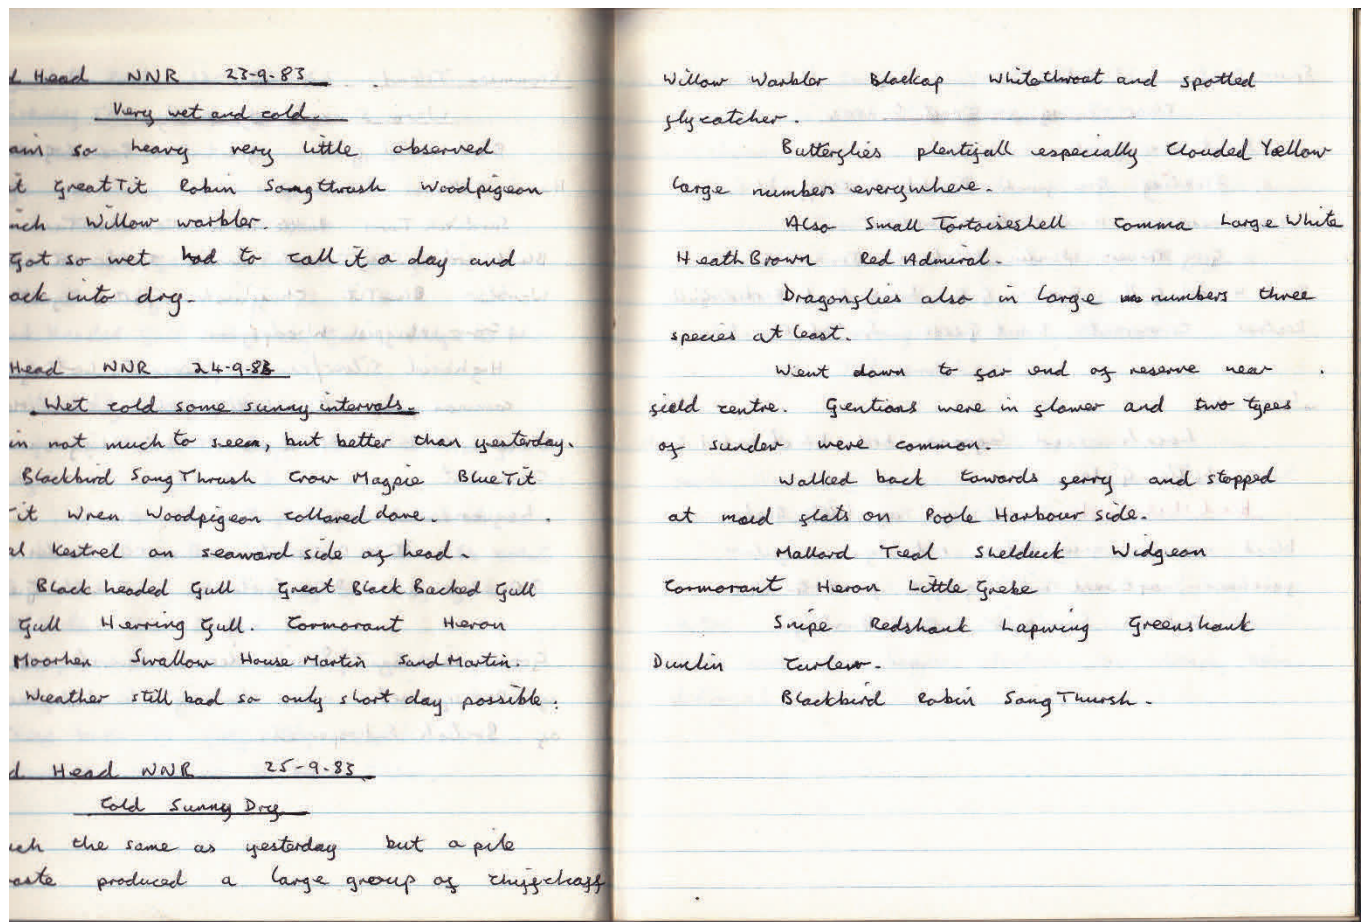 Head NNR 23-9-83
Very wet and cold.
so heavy very little observed
Great Tit Robin Songthrush Woodpigeon
Willow warbler.
Got so wet had to call it a day and
into dry.
Head NNR 24-9-83
Wet cold some sunny intervals.
not much to seem, but better than yesterday.
Blackbird Song Thrush Crow Magpie Blue Tit
Wren Woodpigeon collared dove.
Kestrel on seaward side of head.
Black headed Gull Great Black Backed Gull
Gull Herring Gull. Cormorant Heron
Moorhen Swallow House Martin Sand Martin.
Weather still bad so only short day possible.
Head NNR 25-9-83
Cold Sunny Dry
the same as yesterday but a pile
produced a large group of chiffchaff
Willow Warbler Blackcap Whitethroat and spotted
flycatcher.
Butterflies plentifull especially Clouded Yellow
large numbers everywhere.
Also Small Tortoiseshell Comma Large White
Heath Brown Red Admiral.
Dragonflies also in large numbers three
species at least.
Went down to far end of reserve near
field centre. Gentians were in flower and two types
of sundew were common.
Walked back towards ferry and stopped
at mud flats on Poole Harbour side.
Mallard Teal Shelduck Widgeon
Cormorant Heron Little Grebe
Snipe Redshank Lapwing Greenshank
Dunlin Curlew.
Blackbird Robin Song Thursh.